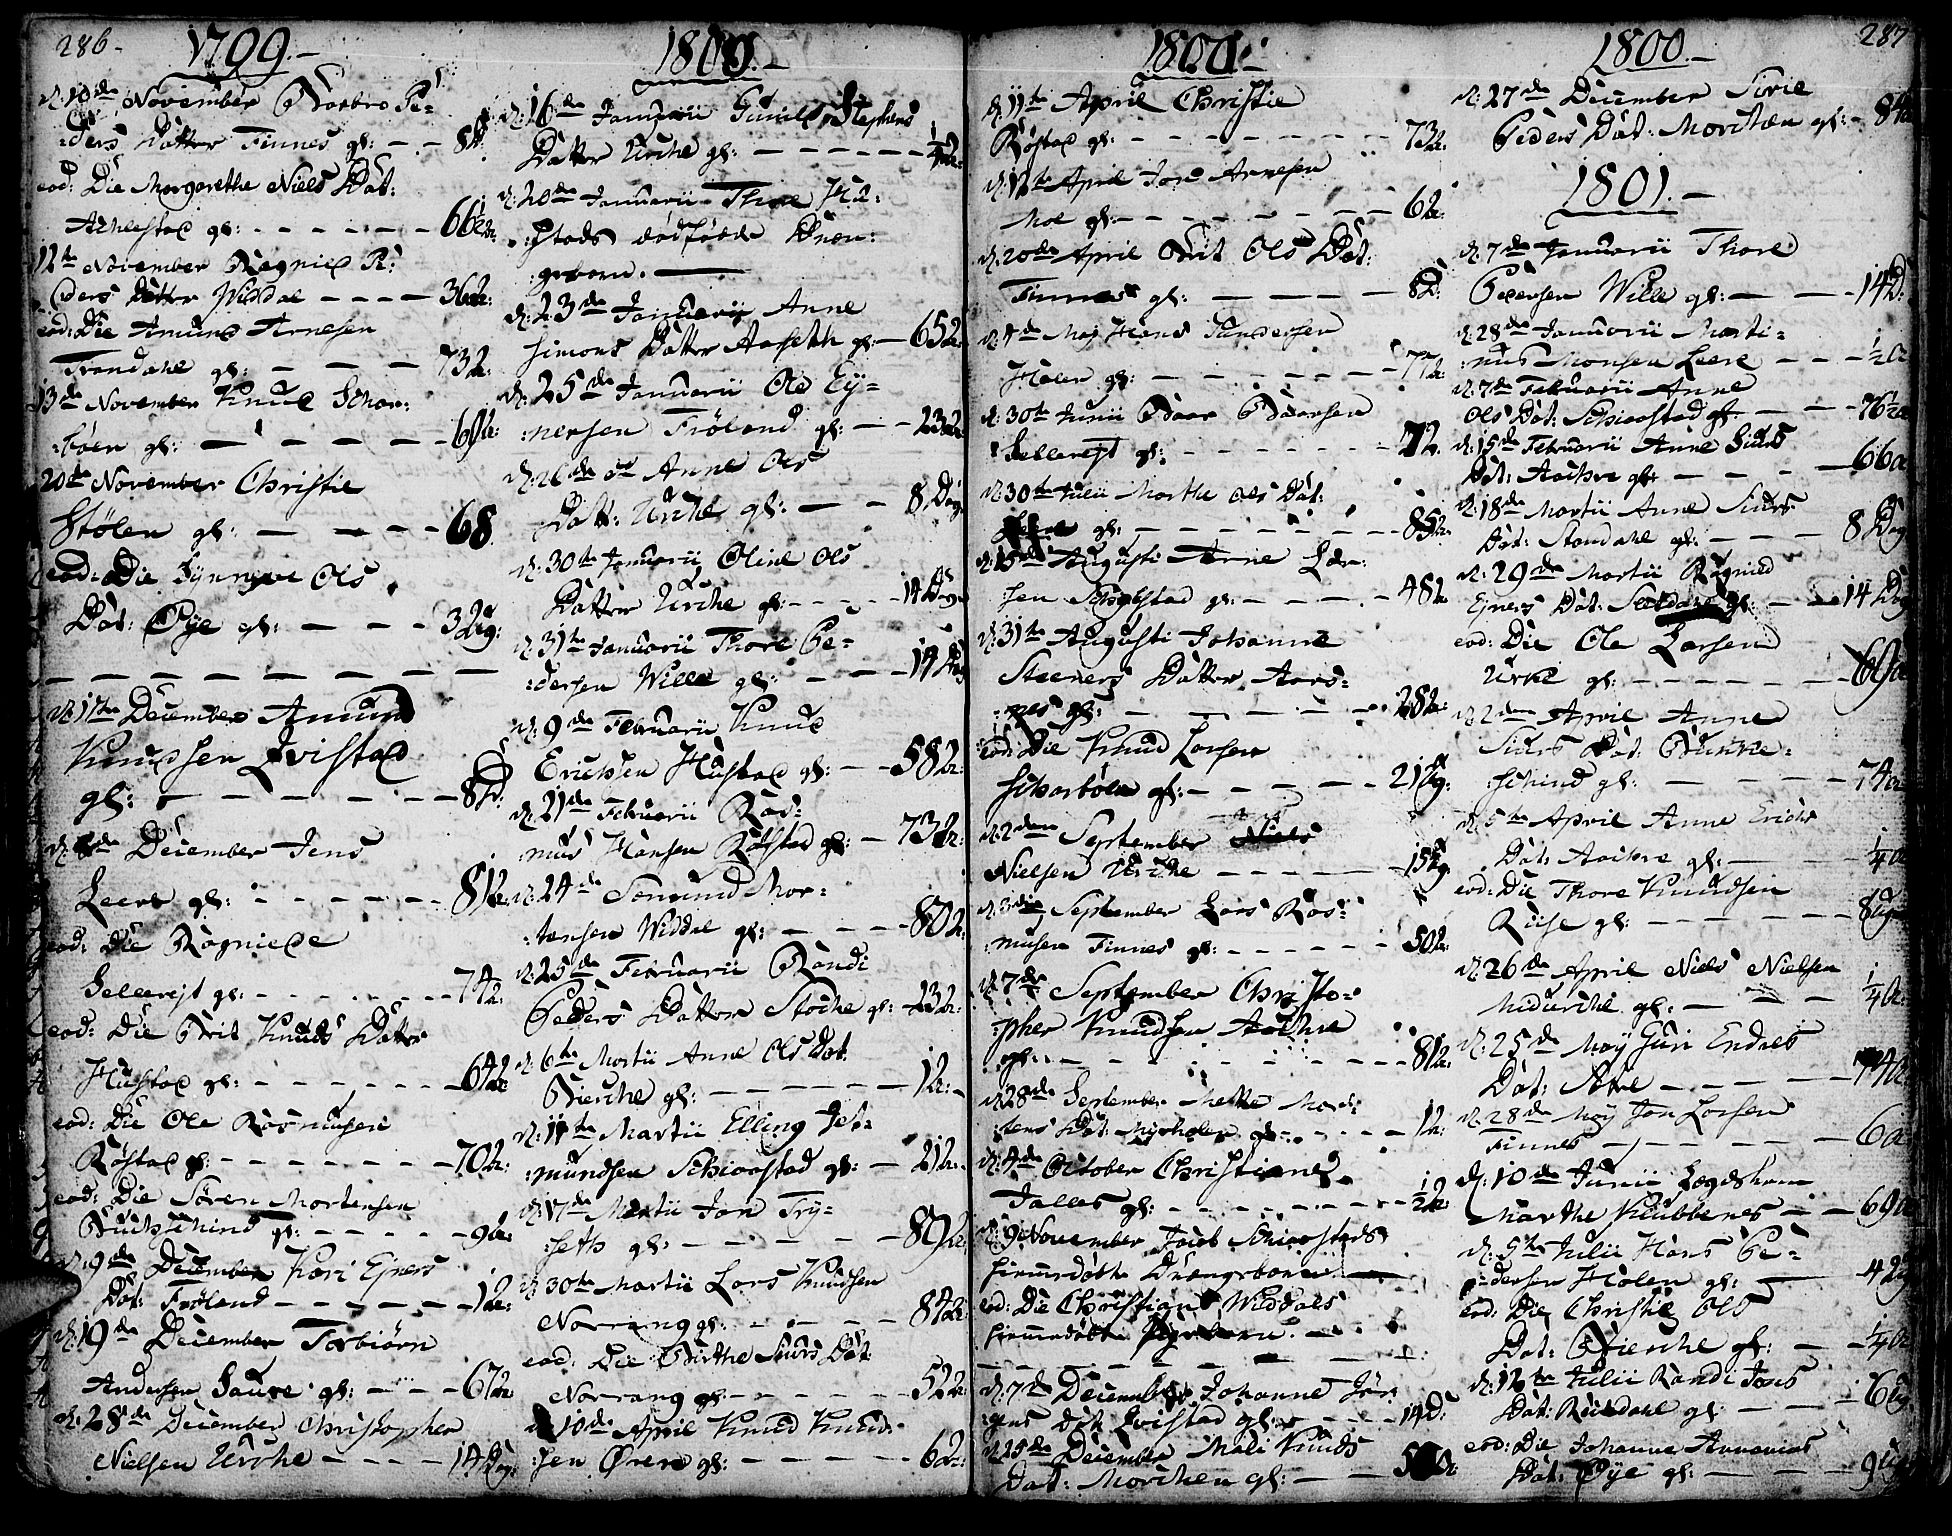 286.-
1799.-
d: 10de November
:ders Datter Finnes gl: - - 8
eod: Die Margrethe Niels Dat:
gl: - - - - - - 66½ar:
12te November Ragnild Pe:
ders Datter Widdal - - - - 36ar:
eod: Die Amund Arnesen
Trandahl gl: - - - - 73ar:
13de November Knud Schor:
:bøen gl: - - - - - - 69ar:
20de November Christie
Stølen gl: - - - - - 68
eod: Die Synneve Ols
Dat: Øye gl: - - - 32
d: 17de December Amund
Knudsen Qvistad
gl: - - - - - - 8D:
December Jens
Leere gl: - - - - - - 81ar:
eod: Die Ragnilde
Sellerejt gl: - - - - - - 74ar:
eod: Die Brit Knuds Datter
Hustad gl: - - - - - - 64ar
eod: Die Ole Rasmusen
Røstad gl: - - - - - - - 70ar:
eod: Die Søren Mortensen
gl: - - - - - 9ar:
d: 9de December Kari Ejners
Dat: Frøland - - - - - - 1ar:
d: 19de December Torbiørn
Andersen Saure gl: - - - 67ar
d: 28de December Christopher
Nielsen Urche - - - - 14 Dag:
1800.-
d: 16de Januarii Gunild Stephens
Datter Urche gl: - - - - - -
d: 20de Januarii Thore Hu:
:stads dødfødde Dren:
gebarn.
d: 23de Januarii Anne
Simons Datter Aasseth gl: - 65ar:
d: 25de Januarii Ole Ey=
:nersen Frøland gl: - - 23ar
d: 26de do Anne Ols
Datt: Urche gl: - - 8 Dag
d: 30te Januarii Oline Ols
Datter Urche gl: - - - - 14 Dage
d: 31te Januarii Thore Pe=
:dersen Wille gl: - - - 14 Dag
d: 9de Februarii Knud
Erichsen Hustad gl: - - 58ar:
d: 21de Februarii Ras=
mus Hansen Røstad gl: - 73ar:
d: 24de Semund Mor=
:tensen Widdal gl: - - - - 80ar:
d: 25de Februarii Randi
Peders Datter Støche gl: - 23ar:
d: 6te Martii Anne Ols Dat
Bierche gl: - - - - - - 1ar:
d: 11te Martii Elling
mundsen Schiaastad gl: - 21ar:
d: 17de Martii Jon Try=
:seth gl: - - - - - - 89ar:
d: 30te Martii Lars Knudsen
Norrang gl: - - - - - 84ar:
eod: Die Birthe Siurs Dat
Norrang gl: - - - - - - 52ar:
d 10de April Knud Knud=
:sen Ørere gl: - - - - - - 6ar:
1800.-
d: 11te April Christie
Røstad gl: - - - - - - - - 73ar:
April Jon Arnesen
Moe gl: - - - - - - - - 6ar:
d: 20de April Brit Ols Dat:
Finnes gl: - - - - 8D:
Maj Hans Sandersen
Holen gl: - - - - - - - 77ar:
d: 30te Junii Baar Baarsen
Sellerejt gl: - - - - - - - 72.
d: 30te Julii Marthe Ols Dat:
gl: - - - - - - - - 85ar:
d: 15de Augusti Arne Lar=
sen gl: - - - - - 48ar
d: 31te Augusti Johanne
Steeners Datter Aars=
nes gl: - - - - - - 28ar:
eod: Die Knud Larsen
Scharbøen gl: - - - - - 21
d: 2den September
Nielsen Urche - - - - - 15
d: 3die September Lars Ras=
musen Finnes gl: - - - - - 50ar:
d: 7de September Christo=
:pher Knudsen Aachre
gl: - - - - - - - - - 81ar:
d: 28de September Mette Mor=
tens Dat: gl: - - - - - 1ar:
d: 4de October Christiane
gl: - - - - - - - ½ar:
d: 9 November Jacob Schiaastads
hiemedøbte Drengebarn
eod: Die Christians Widdals
hiemedøbte Pigebarn.
d: 7de December Johanne Jør=
gens Dat Qvistad gl: - - - 14D:
d: 25de December Mali Knuds
Dat: Morchen gl: - - -
287
1800.-
d: 27de December Sirie
Peders Dat: Morchen gl: - 84ar
1801.-
d: 7de Januarii Thore
Pedersen Wille gl: - - 14D:
d: 28de Januarii Marti=
nus Monsen Leere - - - ½ar
d: 7de Februarii Anne
Ols Dat: Schiaastad gl: - - - 76½ar
d: 15de Februarii Anne Siurs
Dat: Aachre gl: - - - - 66ar
d: 18de Martii Anne Siurs
Dat: Standahl gl: - - - - 8 Dag
d: 29de Martii Ragnild
Ejners Dat: gl: - - 14 Dag
eod: Die Ole Larsen
Urke gl: - - - - - - - 69ar
d: 2den April Anne
Siurs Dat: Bunke=
schind gl: - - - - 74ar
d: 5te April Anne Erichs
Dat: Aachre gl: - - - ¼ar
eod: Die Thore Knudsen
Riise gl: - - - - - - 8
d: 26de April Niels Nielsen
Midurche gl: - - - - ¼ar:
d: 25de Maij Guri Endres
Dat: - - - - - - 74ar:
d: 28de Maij Jon Larsen
Finnes - - - - - - 6ar:
d: 10de Junii Lægdslem
Marthe Klubbenes - - 69ar
d: 5te Julii Hans Pe=
:dersen Holen gl: - - 42
eod: Die Christie Ols
Dat: Bierche gl: - - ¼ar
d: 12te Julii Randi Jons
Dat: Riisdahl gl: - - - 6
eod: Die Johanne Annanias
Dat: Øye gl: - - - - 9